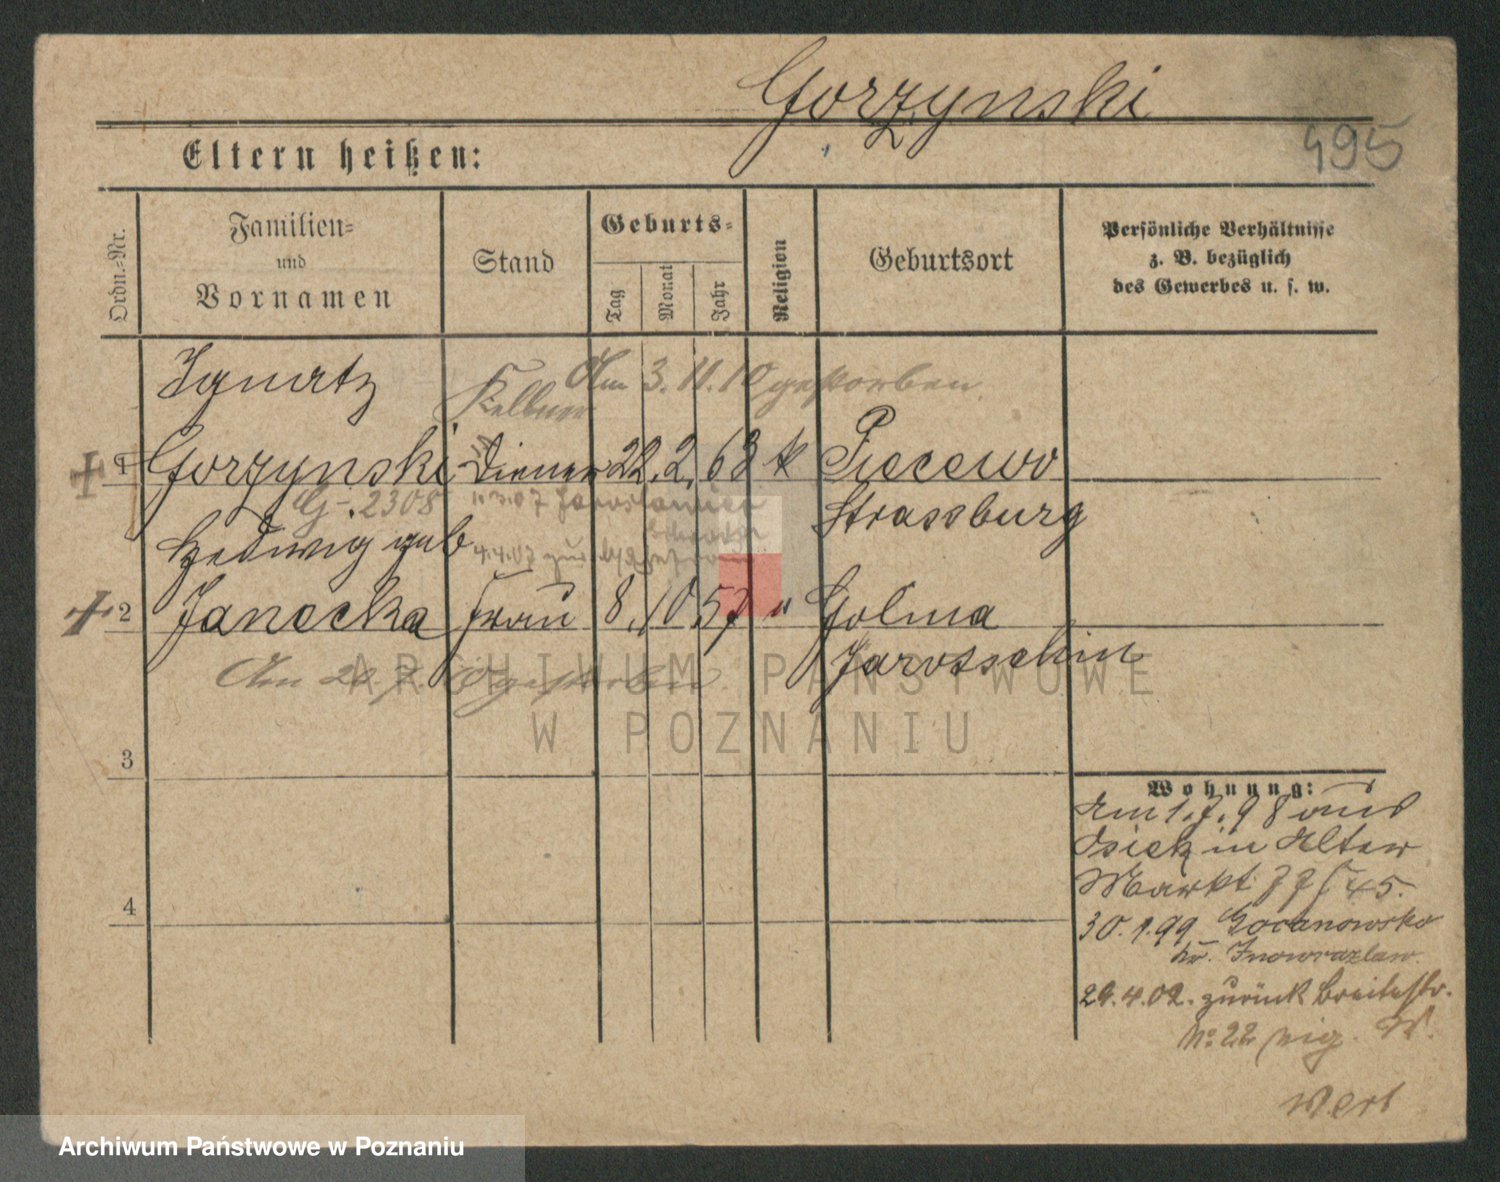 Gorzynski
495
Eltern heißen:
Ordn.-Nr.
Familien-
und
Vornamen
Stand
Geburts-
Tag
Monat
Jahr
Religion
Geburtsort
Persönliche Verhältnisse
z. B. bezüglich
des Gewerbes u. s. w.
Am 3.11.10 gestorben
Ignatz
Kellner
1 Gorzynski Diener 22. 2. 63 k Piecewo
G. 2308
Strassburg
Hedwig geb
4.4.07
2 Janecka Frau 8. 10 57 " Golina
Jarotschin
Am gestorben
ARCHIWUM PAŃSTWOWE
W POZNANIU
3
4
Wohnung:
Am 1.7.98 aus
in Alter
Markt 45.
30.1.99 Gocanowsko
Kr. Inowrazlaw.
29.4.02. zurück Breitestr.
No 22
Archiwum Państwowe w Poznaniu